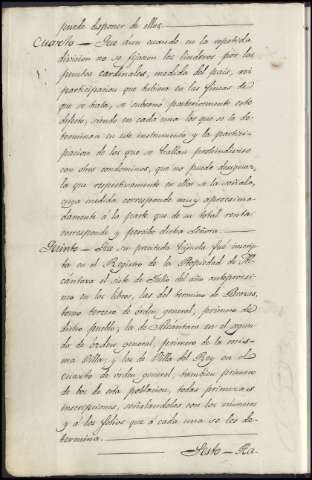 puede disponer de ellos.
Cuarto = Que aun cuando en la repetida
division no se fijaron los linderos por los
puntos cardinales, medida del país, mi
participacion que detiene en las fincas de
que se trata, se subsanó posteriormente este
defecto, siendo en cada una los que se la de-
terminan en este instrumento y la partici-
pacion de los que se hallan proindiviso
con otros condominos, que no puede designar,
la que respectivamente en ellos se la señala,
cuya medida corresponde muy aproxima-
damente á la parte que de su total renta
corresponde y percibe dicha Señora.
Quinto = Que su precitada hijuela fué inscrip-
ta en el Registro de la Propiedad de Al-
cántara el siete de Julio del año anteproxi-
mo en los libros, las del termino de Brozas,
tomo tercero de orden general, primero de
dicho pueblo; la de Alcántara en el segun-
do de orden general, primero de la mis-
ma Villa; y las de Villa del Rey en el
cuarto de orden general, tambien primero
de los de esta poblacion, todas primeras
inscripciones, señalandolas con los números
y á los folios que á cada una se les de-
termina.
Sesto = Que